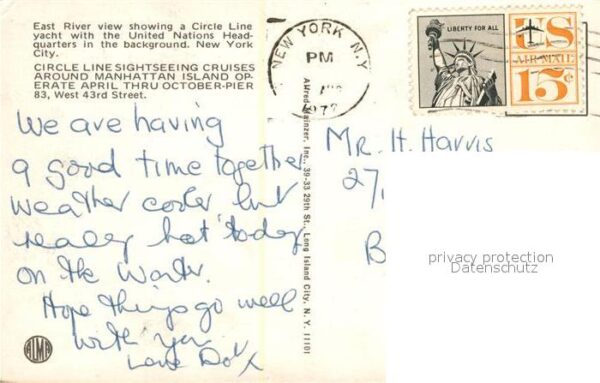 East River view showing a Circle Line
yacht with the United Nations Head-
quarters in the background. New York
City.
CIRCLE LINE SIGHTSEEING CRUISES
AROUND MANHATTAN ISLAND OP-
ERATE APRIL THRU OCTOBER-PIER
83, West 43rd Street.
We are having
a good time together
weather cooler but
really hot today
on the Water.
Hope things go well
with you.
Love Dot X
ALMA
Alfred Mainzer, Inc., 39-33 29th St., Long Island City, N. Y. 11101
NEW YORK, N.Y.
PM
LIBERTY FOR ALL
US
AIR MAIL
15¢
Mr. H. Harris
27,
B
privacy protection
Datenschutz